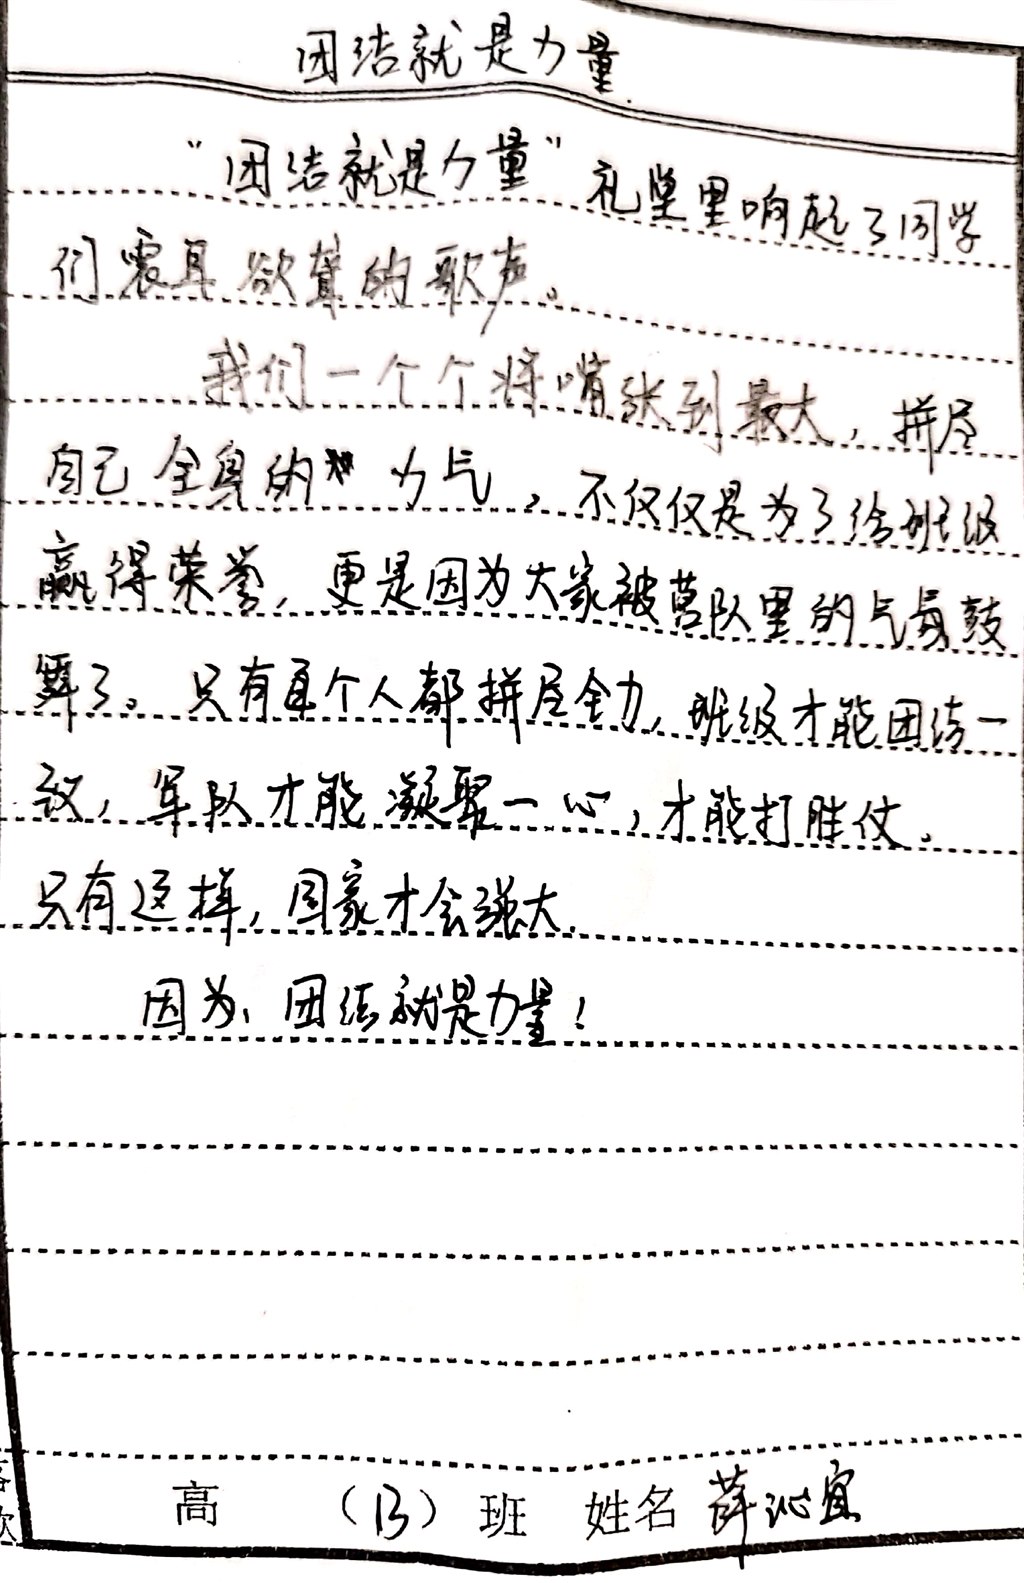 团结就是力量
“团结就是力量”礼堂里响起了同学
们震耳欲聋的歌声。
我们一个个将嘴张到最大，拼尽
自己全身的力气，不仅仅是为了给班级
赢得荣誉，更是因为大家被营队里的气氛鼓
舞了。只有每个人都拼尽全力，班级才能团结一
致，军队才能凝聚一心，才能打胜仗。
只有这样，国家才会强大。
因为，团结就是力量！
高 （13）班 姓名 薛沁宜